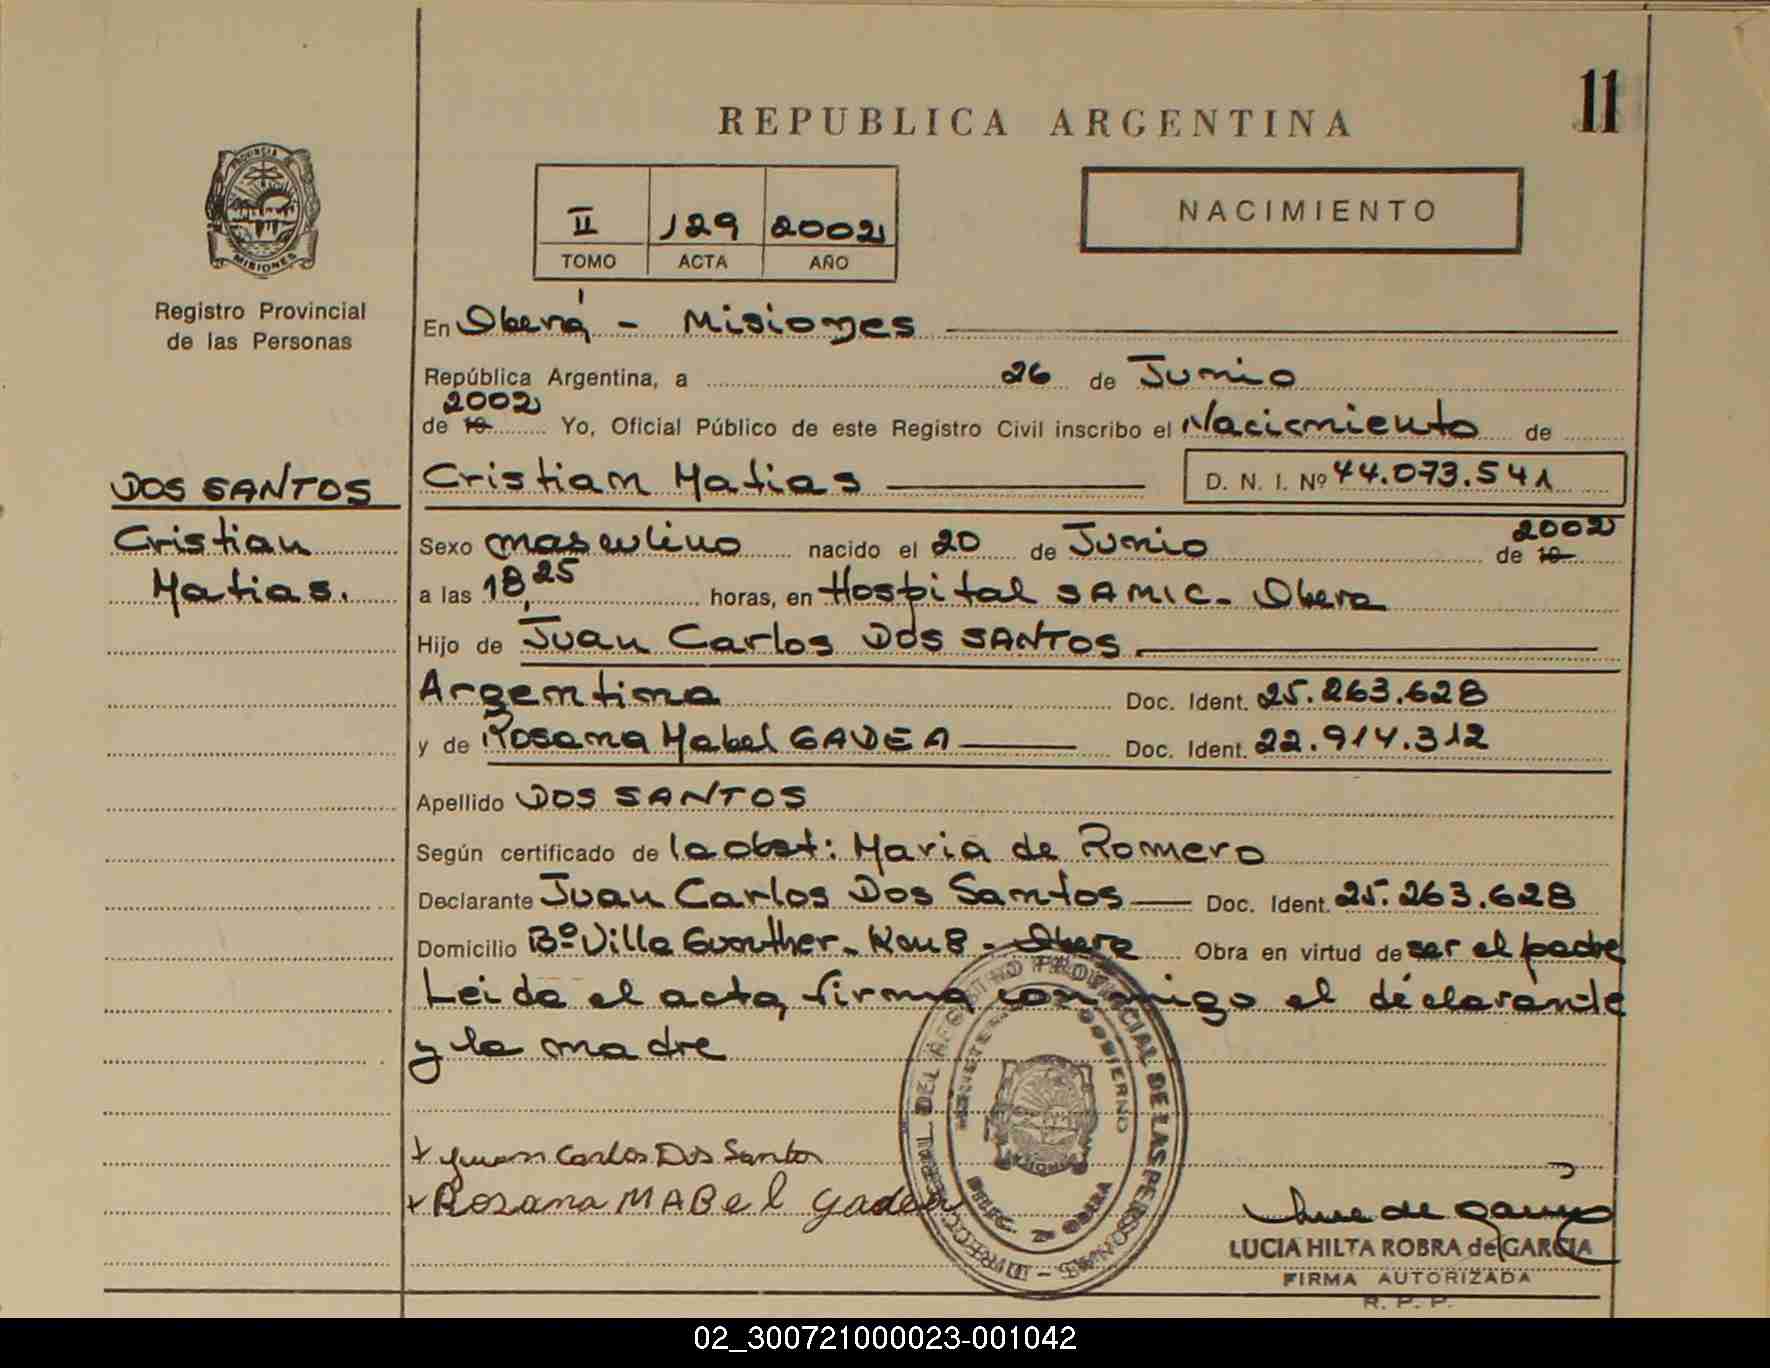 11
REPUBLICA ARGENTINA
PROVINCIA DE
MISIONES
Registro Provincial
de las Personas
II 129 2002
TOMO ACTA AÑO
NACIMIENTO
En Oberá - Misiones
República Argentina, a 26 de Junio
2002
de 19 Yo, Oficial Público de este Registro Civil inscribo el Nacimiento de
Cristian Matias D. N. I. Nº 44.073.541
DOS SANTOS
Cristian
Matias.
Sexo masculino nacido el 20 de Junio de 19 2002
a las 18,25 horas, en Hospital SAMIC - Obera
Hijo de Juan Carlos DOS SANTOS
Argentina Doc. Ident. 25.263.628
y de Rosana Mabel GADEA Doc. Ident. 22.914.312
Apellido DOS SANTOS
Según certificado de la obst: Maria de Romero
Declarante Juan Carlos Dos Santos Doc. Ident. 25.263.628
Domicilio Bº Villa Gunther - Km 8 - Obera Obra en virtud de ser el padre
Leida el acta, firma conmigo el declarante
y la madre
+ Juan Carlos Dos Santos
+ Rosana MABel Gadea
DEL REGISTRO PROVINCIAL DE LAS PERSONAS - DIRECC
MINISTERIO GOBIERNO
LUCIA HILTA ROBRA de GARCIA
FIRMA AUTORIZADA
R. P. P.
02_300721000023-001042